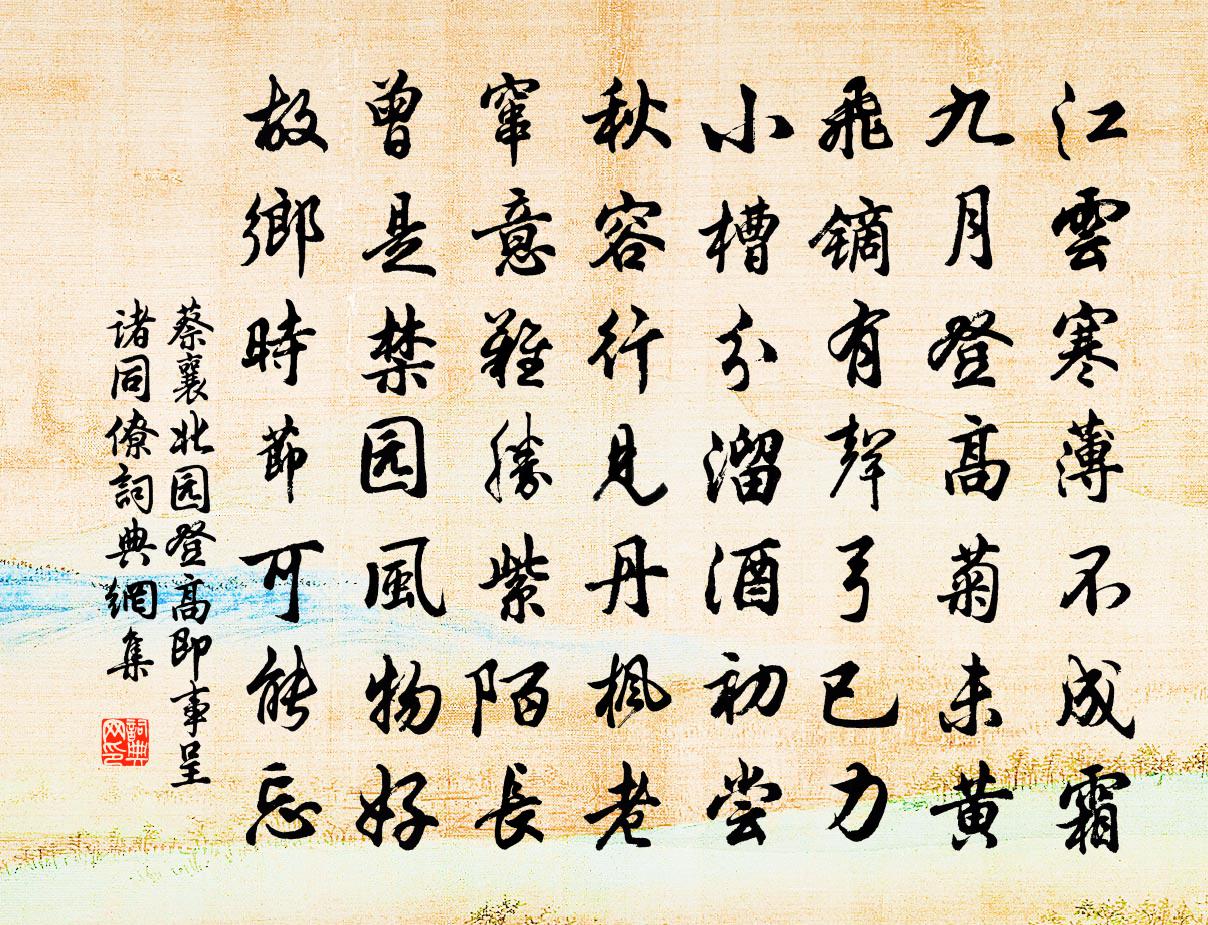 江雲寒薄不成霜
九月登高菊未黄
飛鏑有聲弓已力
小槽分溜酒初尝
秋容行見丹楓老
窜意難勝紫陌長
曾是禁园風物好
故鄉時節可能忘
蔡襄北园登高即事呈
诸同僚詞典網集
詞典
网印